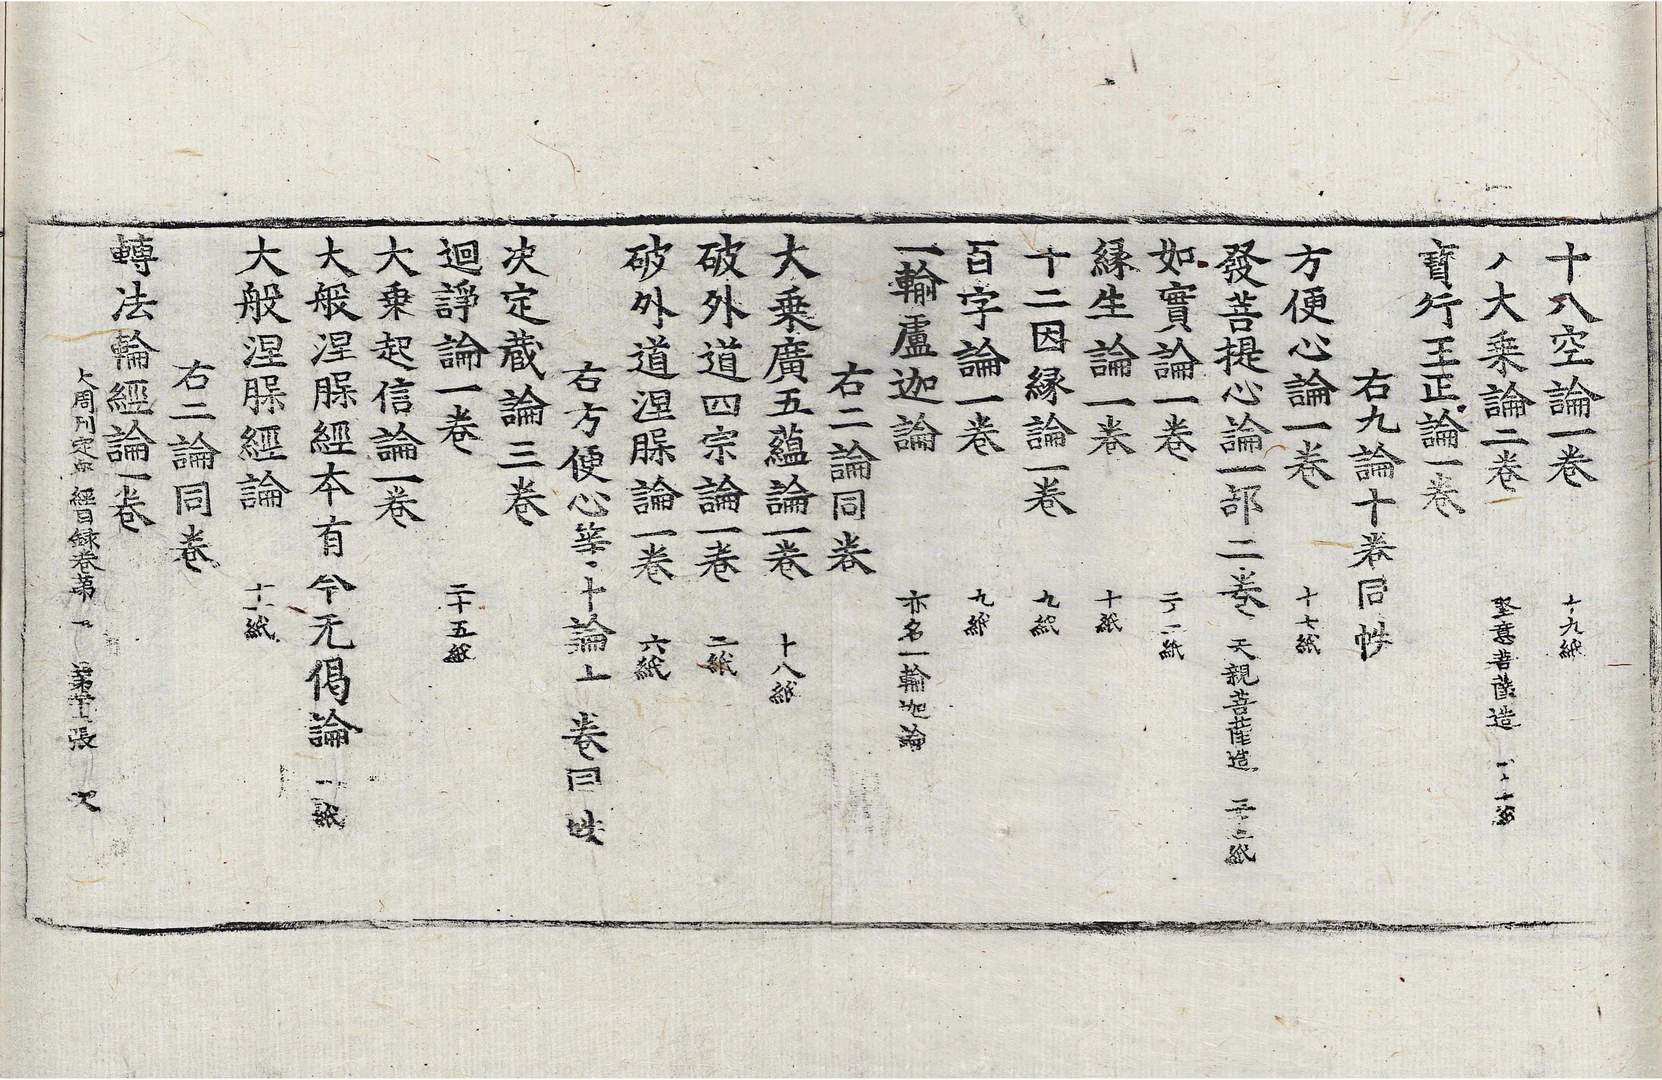 十八空論一卷 十九紙
入大乘論二卷 堅意菩薩造
寶行王正論一卷
右九論十卷同帙
方便心論一卷 十七紙
發菩提心論一部二卷 天親菩薩造 二十二紙
如實論一卷 二十二紙
緣生論一卷 十紙
十二因緣論一卷 九紙
百字論一卷 九紙
一輸盧迦論 亦名一輪迦論
右二論同卷
大乘廣五蘊論一卷 十八紙
破外道四宗論一卷 二紙
破外道涅脲論一卷 六紙
右方便心等十論上卷同帙
决定藏論三卷
迴諍論一卷 二十五紙
大乘起信論一卷
大般涅脲經本有今无偈論 一紙
大般涅脲經論 十一紙
右二論同卷
轉法輪經論一卷
大周刊定衆經目録卷第 第 張